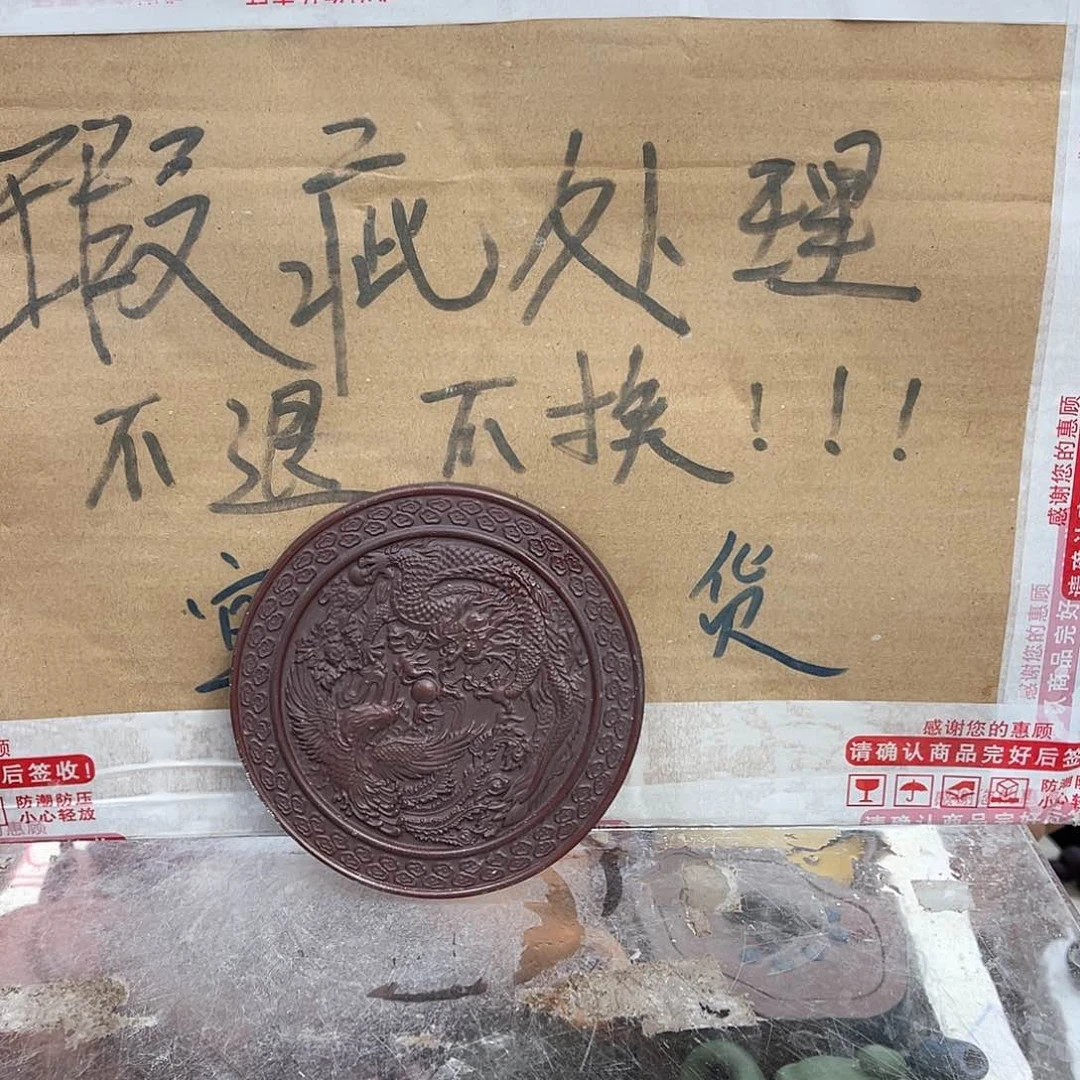 瑕疵处理
不退不换!!!
货
感谢您的惠顾
请确认商品完好后签
防潮防压
小心轻放
后签收!
感谢您的惠顾
商品完好
感谢您的惠顾